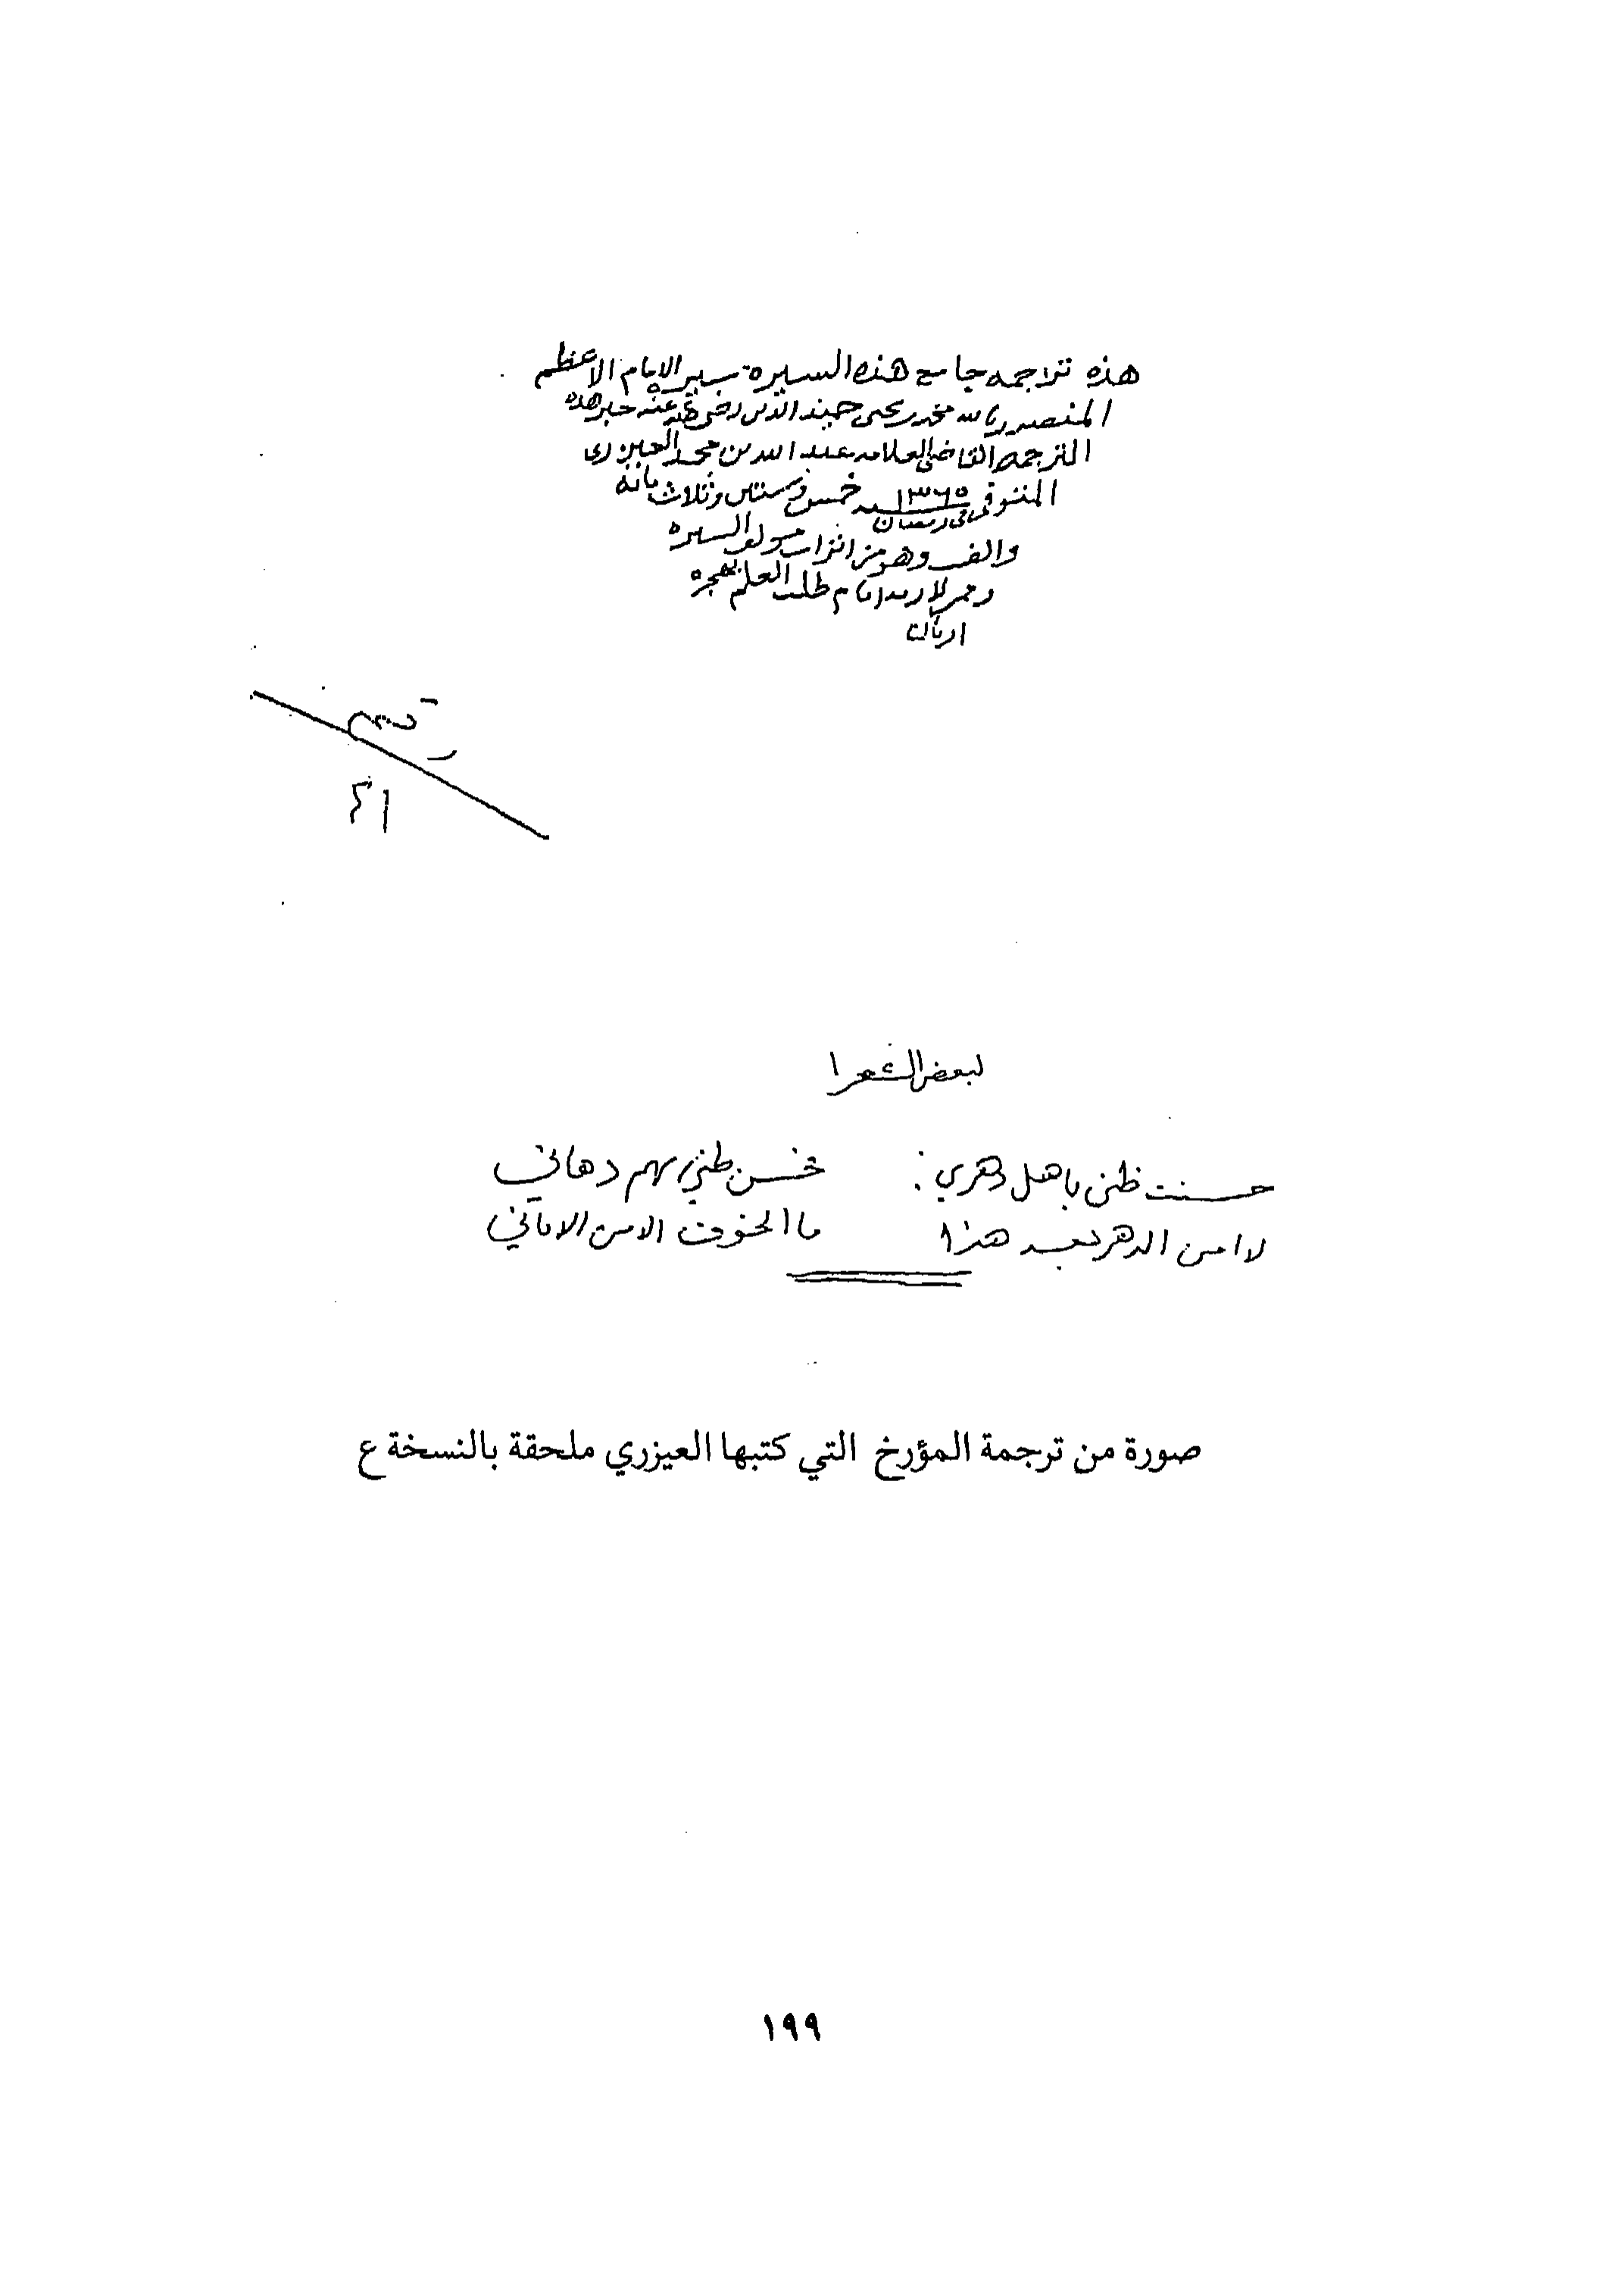 هذه تراجمه جامع هذه السيره سيره الامام الاعظم
المنصور بالله محمد يحيى حميد الدين رضي الله عنه حابر هذه
الترجمه القاضي العلامه عبد الله بن محمد العيزري
المتوفى ١٣٦٥ سنه خمس وستين وثلاث مائة
في رمضان
والف وهو من اتراب مولف السيره
وممن ايام طلب العلم بهجره
ارياب
رقم
٤١
لبعض الشعرا
حسنت ظني باهل دهري : فحسن ظني بهم دهاني
لا امن الدهر بعد هذا ما الخوف الا من الاماني
صورة من ترجمة المؤرخ التي كتبها العيزري ملحقة بالنسخة ع
١٩٩